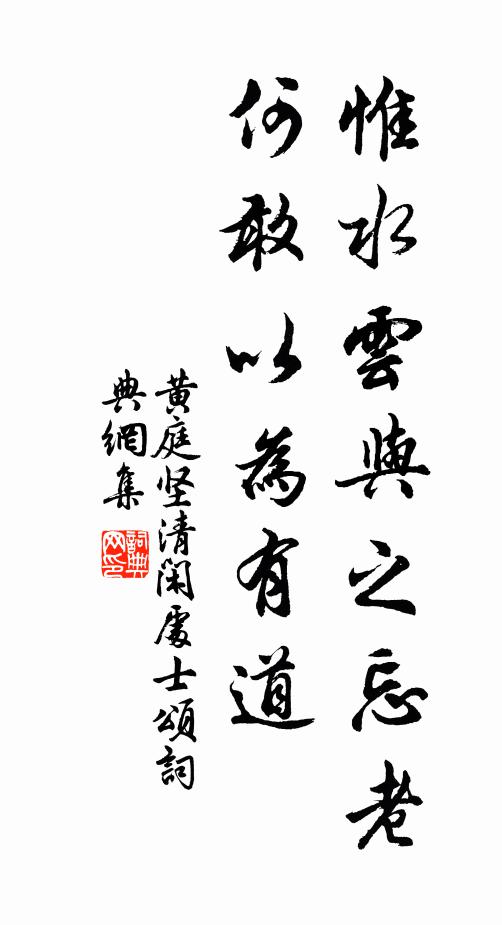 惟水雲與之忘老
何敢以為有道
黄庭坚清閑處士頌詞
典網集
詞典
网印